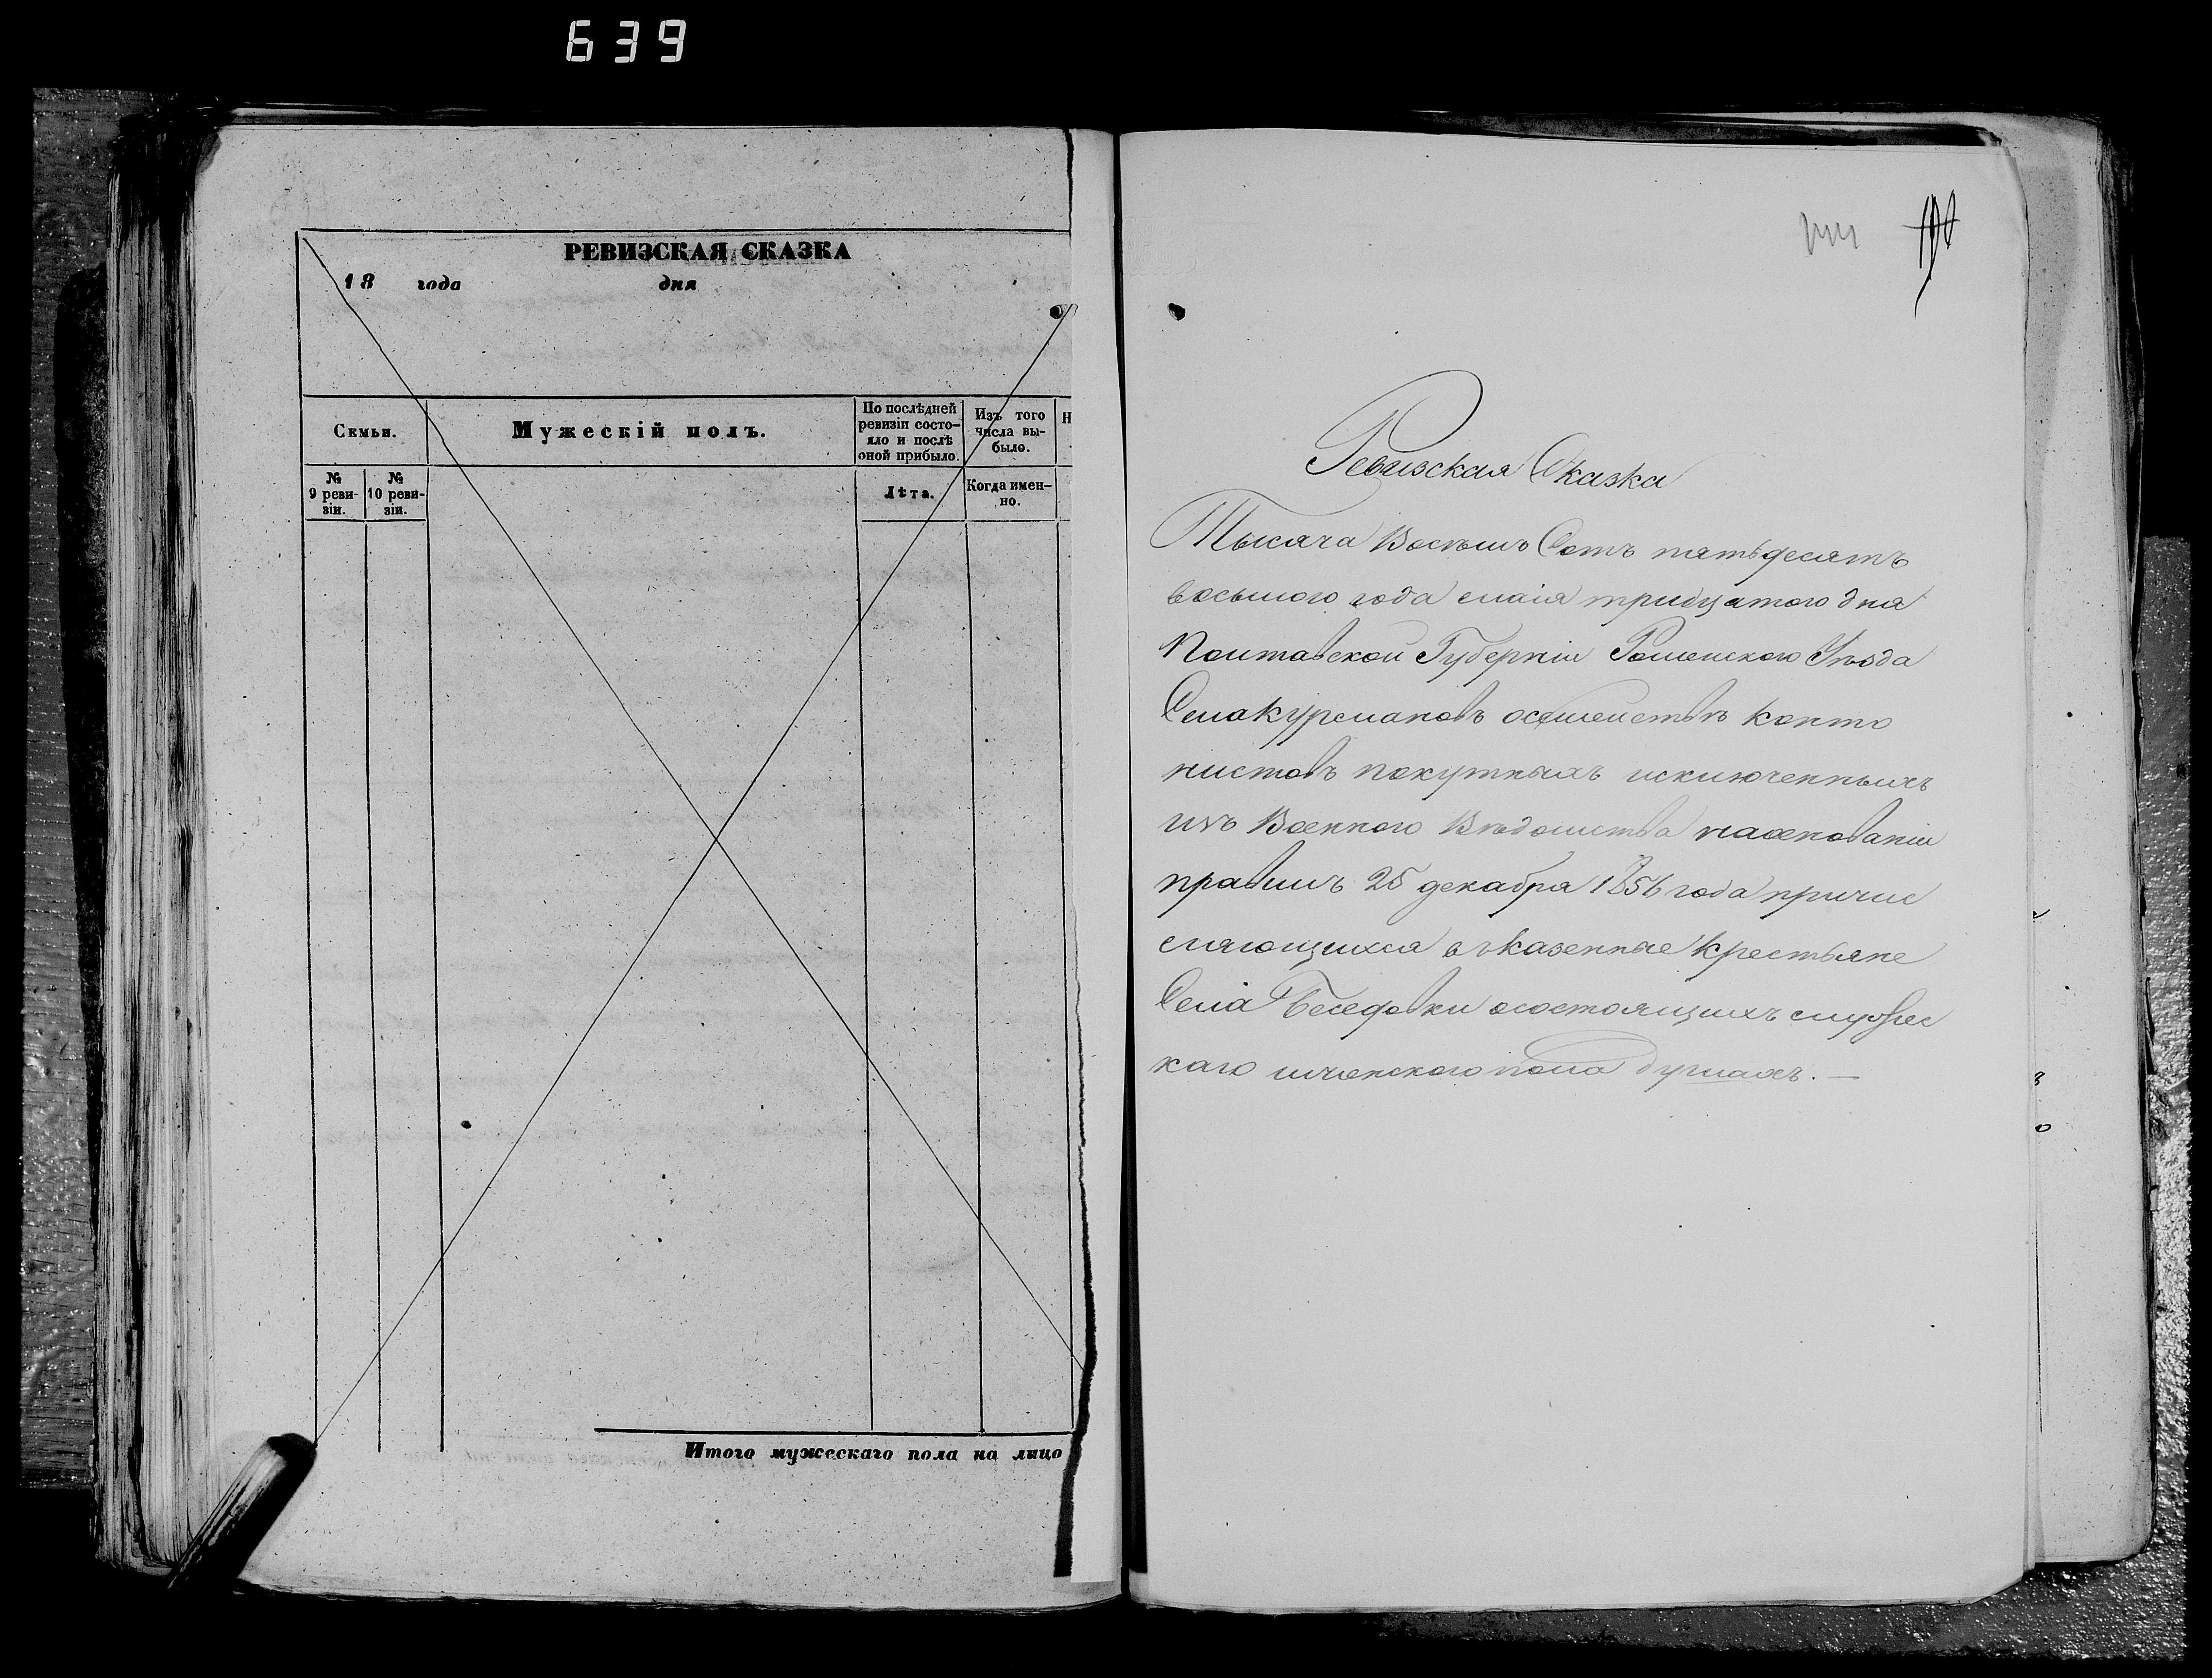 639
РЕВИЗСКАЯ СКАЗКА
18 года дня
Семьи.
Мужескій полъ.
По послѣдней ревизіи состо-
яло и послѣ
оной прибыло.
Изъ того
числа вы-
было.
Н
№
9 реви-
зіи.
№
10 реви-
зіи.
Лѣта.
Когда имен-
но.
Итого мужескаго пола на лицо
Ревизская Сказка
Тысяча Восемь Сотъ пятьдесятъ
восьмого года маія тридцятого дня
Полтавской Губерніи Роменского Уѣзда
Села Курмановъ осемействѣ канто
нистовъ исключенныхъ
изъ Военного Вѣдомства наосновании
правилъ 25 декабря 1856 года причис
ляющихся вказенные крестьяне
Села Беседовки осостоящихъ смужес
каго иженского пола душахъ. —